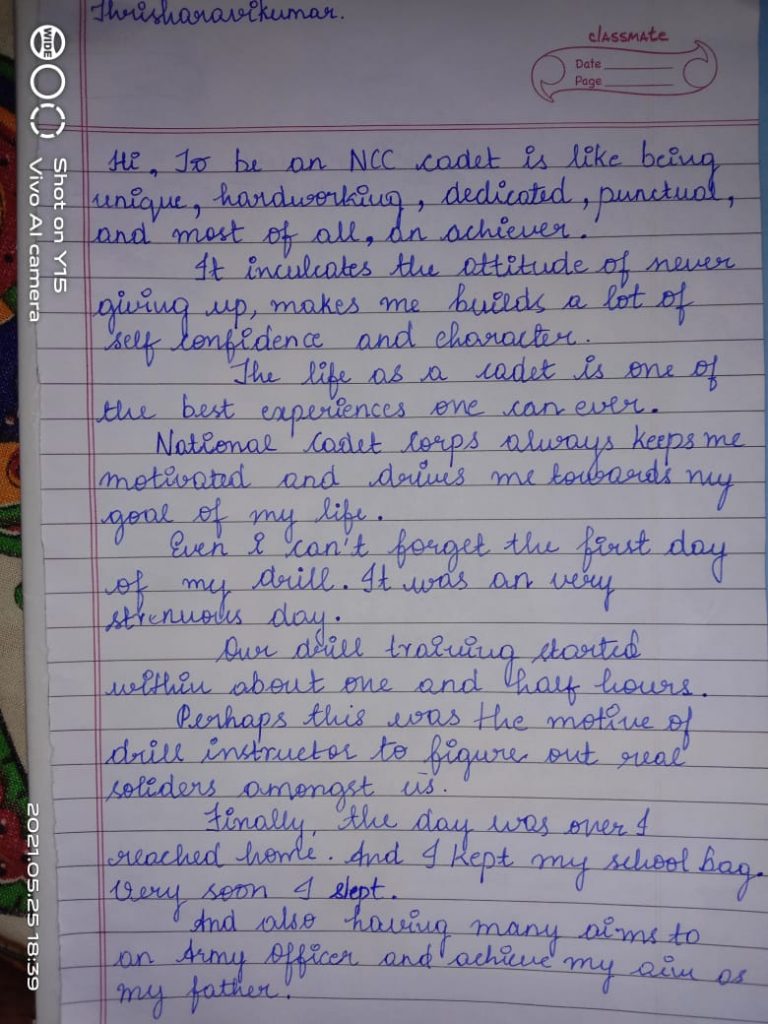 Thrisharavikumar.
classmate
Date
Page
Hi, To be an NCC cadet is like being
unique, hardworking, dedicated, punctual,
and most of all, an achiever.
It inculcates the attitude of never
giving up, makes me builds a lot of
self confidence and character.
The life as a cadet is one of
the best experiences one can ever.
National Cadet Corps always keeps me
motivated and drives me towards my
goal of my life.
Even I can't forget the first day
of my drill. It was an very
strenuous day.
Our drill training started
within about one and half hours.
Perhaps this was the motive of
drill instructor to figure out real
soliders amongst us.
Finally, the day was over I
reached home. And I kept my school bag.
Very soon I slept.
And also having many aims to
an Army Officer and achieve my aim as
my father.
WIDE
Shot on Y15
Vivo AI camera
2021.05.25 18:39